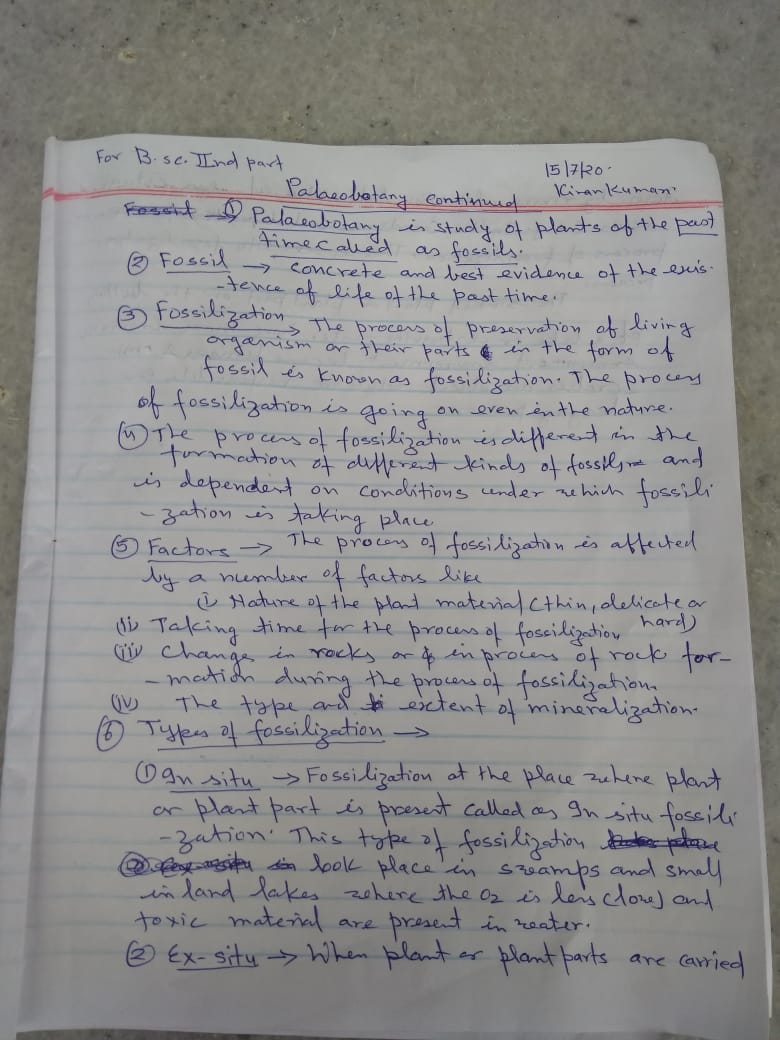 For B.sc. IInd part
15/7/20.
Kiran Kumari
Palaeobotany continued
① Palaeobotany is study of plants of the past
time called as fossils.
② Fossil → concrete and best evidence of the exis-
-tence of life of the past time.
③ Fossilization → The process of preservation of living
organism or their parts in the form of
fossil is known as fossilization. The process
of fossilization is going on even in the nature.
④ The process of fossilization is different in the
formation of different kinds of fossils and
is dependent on conditions under which fossili
-zation is taking place.
⑤ Factors → The process of fossilization is affected
by a number of factors like
(i) Nature of the plant material (thin, delicate or
hard)
(ii) Taking time for the process of fossilization
(iii) Change in rocks or in process of rock for-
-mation during the process of fossilization.
(iv) The type and extent of mineralization.
⑥ Types of fossilization →
① In situ → Fossilization at the place where plant
or plant part is present called as In situ fossili
-zation. This type of fossilization
took place in swamps and small
in land lakes where the O2 is less (low) and
toxic material are present in water.
② Ex-situ → When plant or plant parts are carried